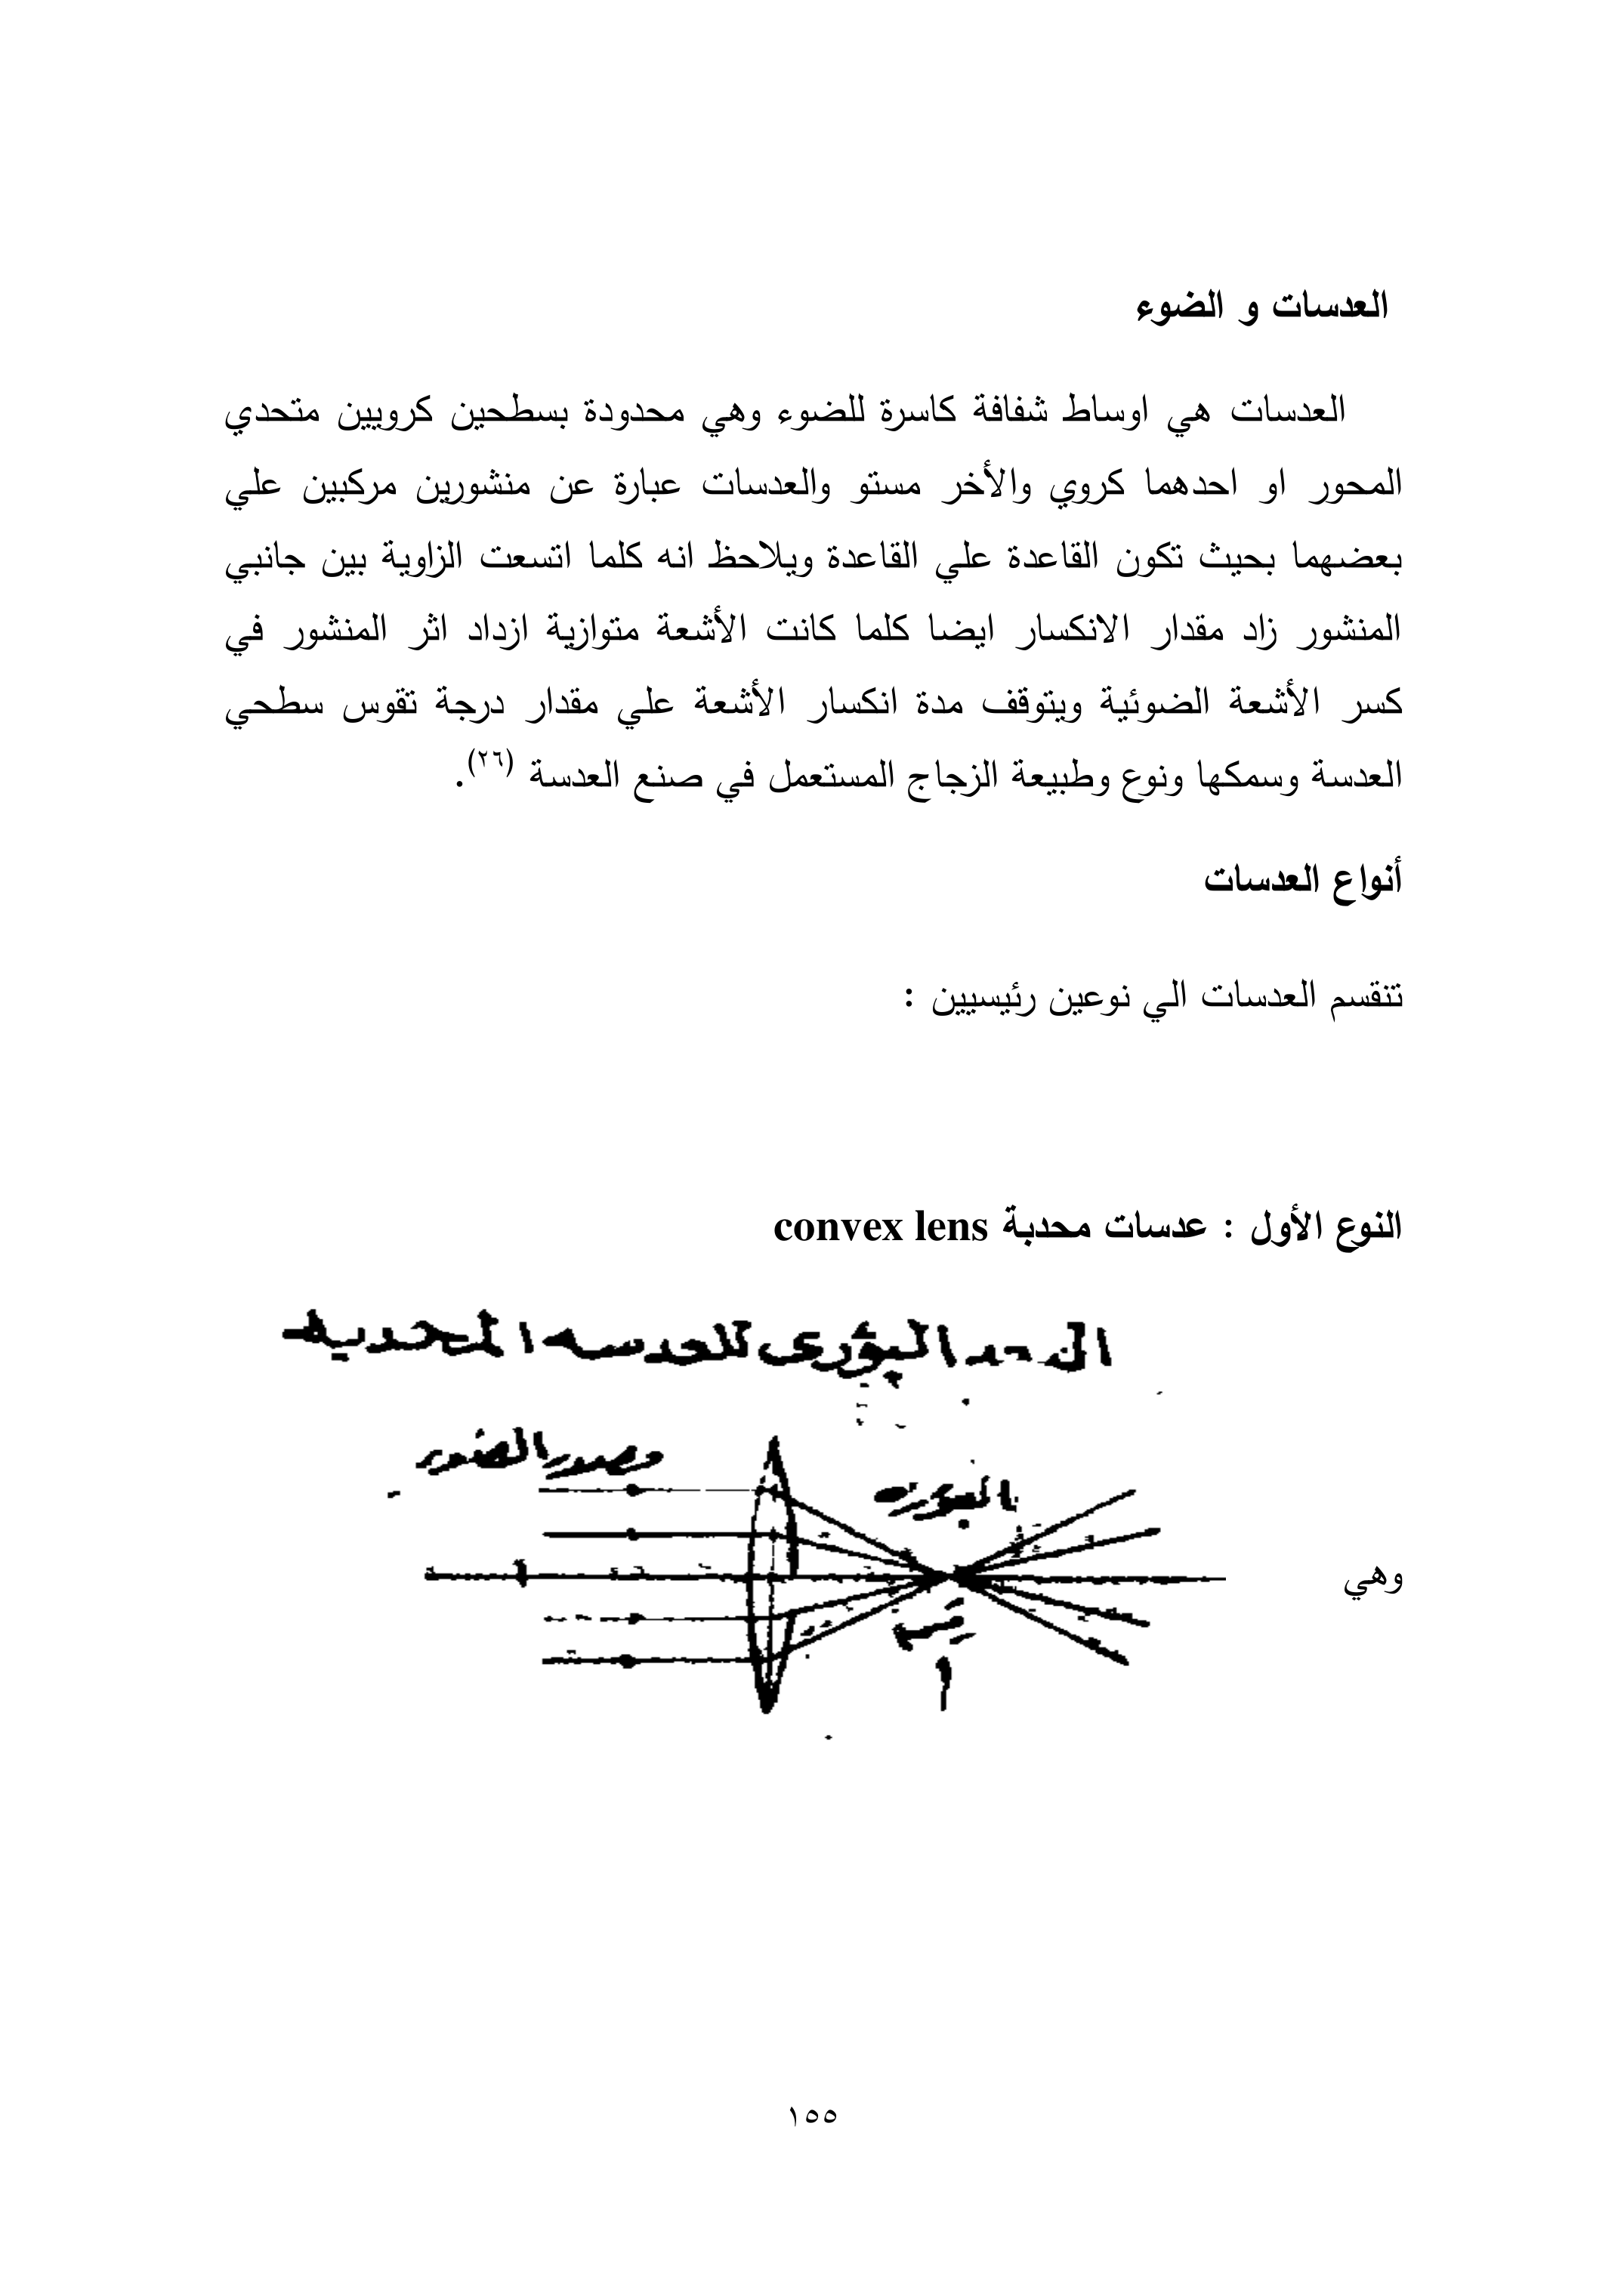 العدسات و الضوء
العدسات هي اوساط شفافة كاسرة للضوء وهي محدودة بسطحين كرويين متحدي
المحور او احدهما كروي والأخر مستو والعدسات عبارة عن منشورين مركبين علي
بعضهما بحيث تكون القاعدة علي القاعدة ويلاحظ انه كلما اتسعت الزاوية بين جانبي
المنشور زاد مقدار الانكسار ايضا كلما كانت الأشعة متوازية ازداد اثر المنشور في
كسر الأشعة الضوئية ويتوقف مدة انكسار الأشعة علي مقدار درجة تقوس سطحي
العدسة وسمكها ونوع وطبيعة الزجاج المستعمل في صنع العدسة (٢٦).
أنواع العدسات
تنقسم العدسات الي نوعين رئيسيين :
النوع الأول : عدسات محدبة convex lens
البؤرى للعدسه المحدبه
البؤره
وهي
١٥٥